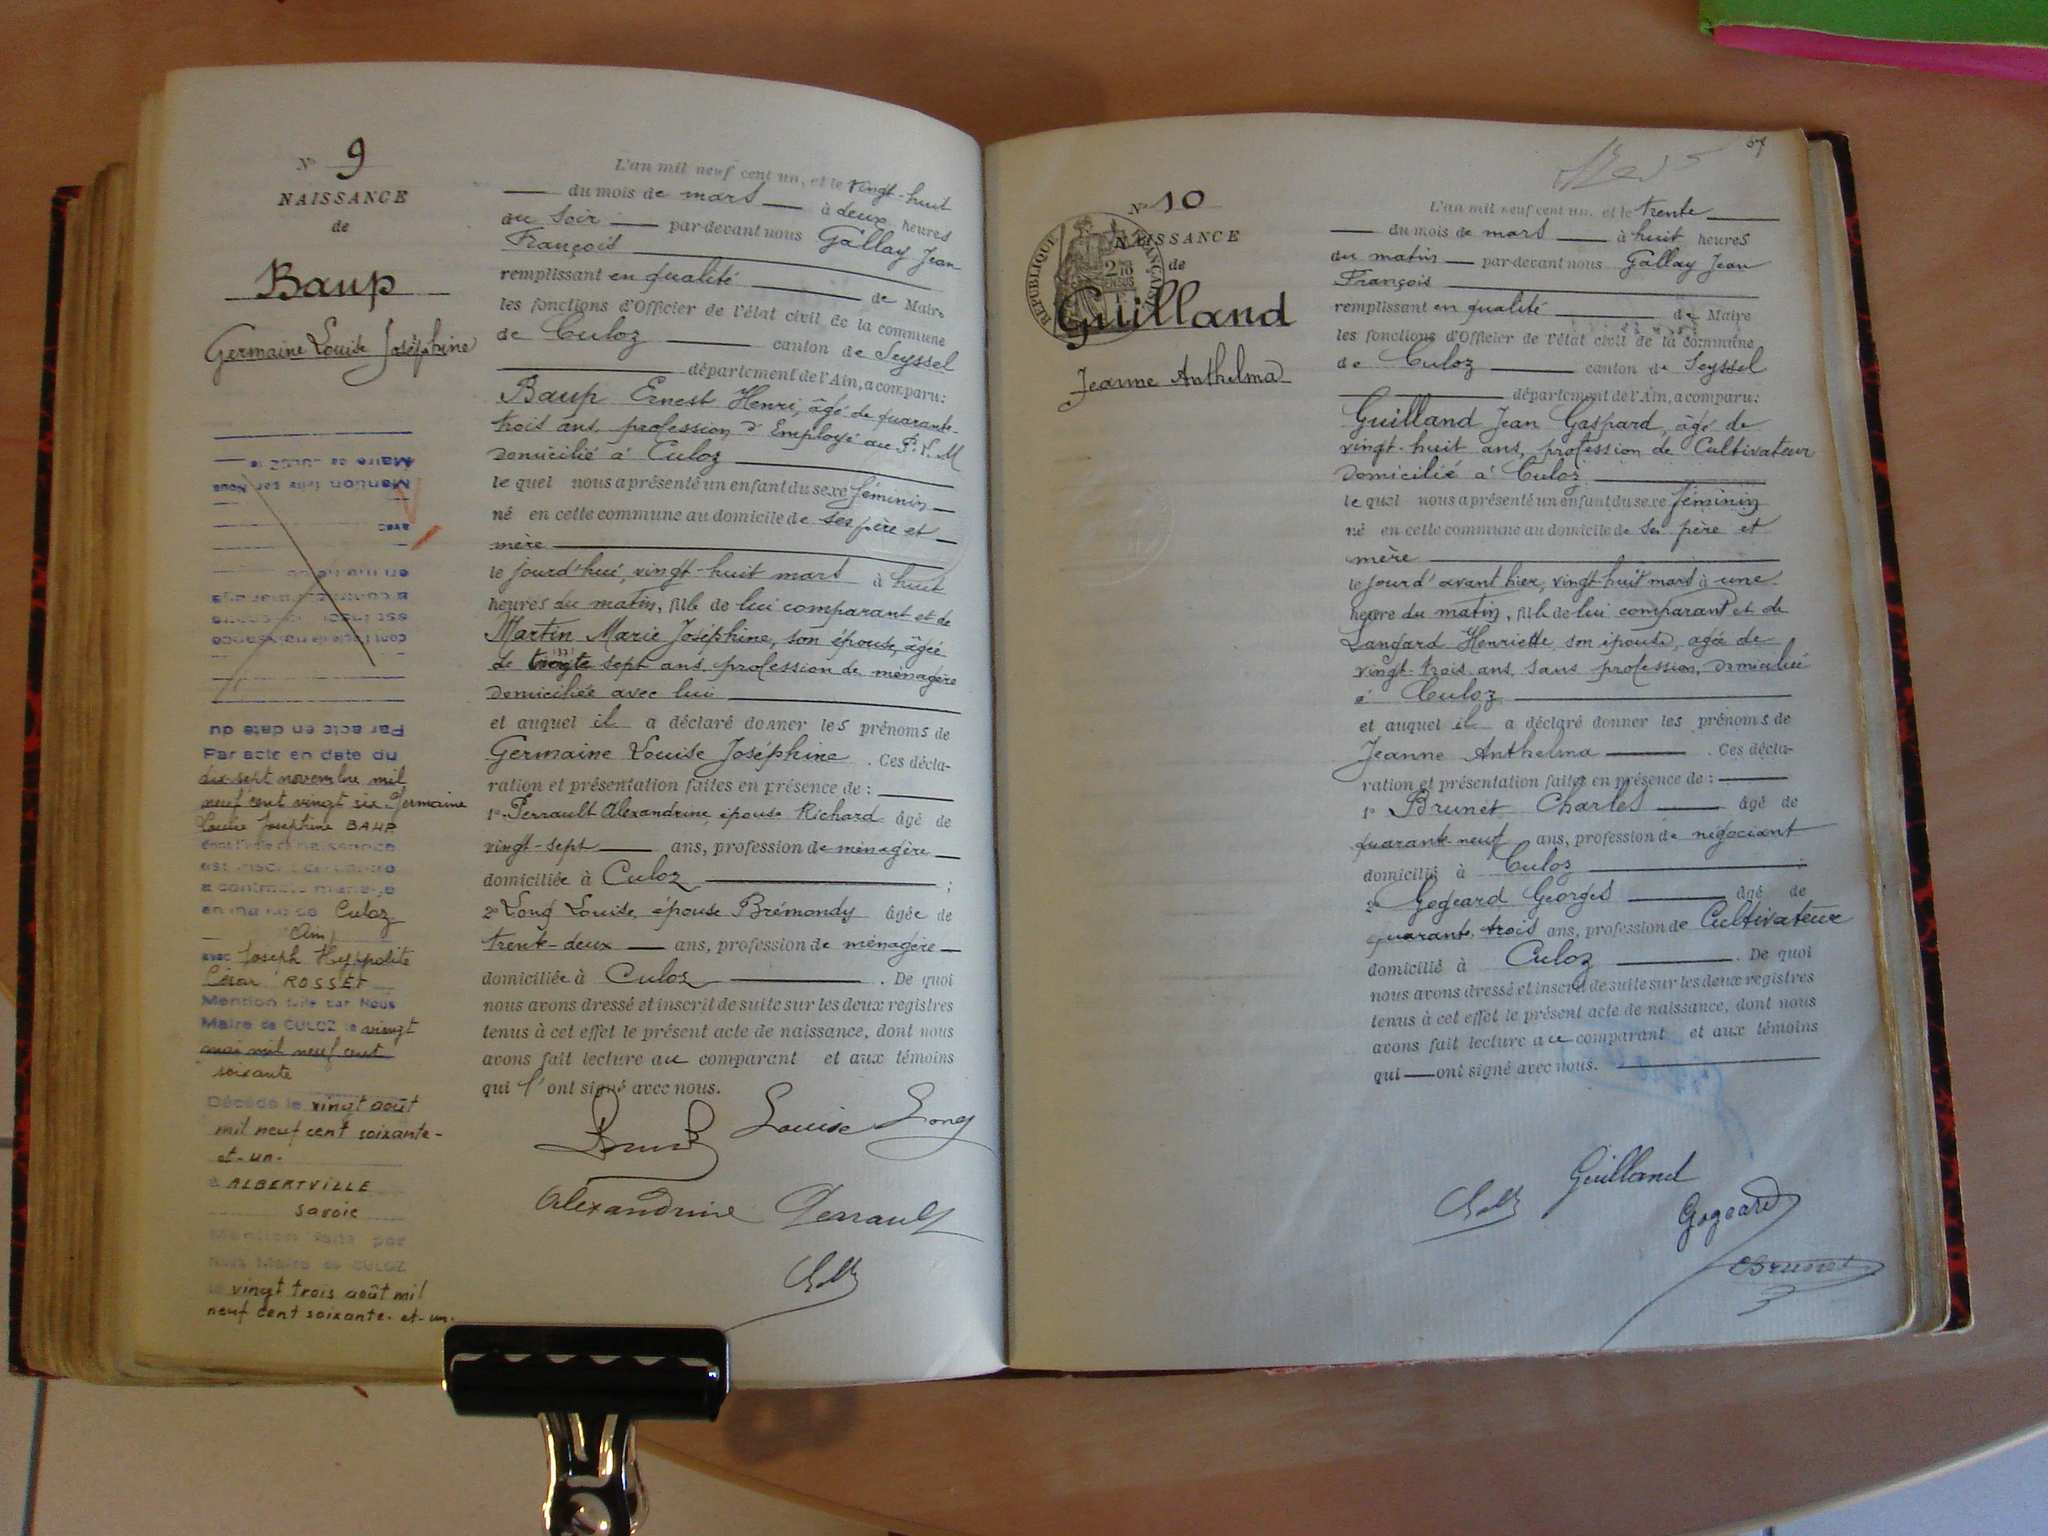 N° 9
NAISSANCE
de
Baup
Germaine Louise Joséphine
Maire de CULOZ le
Mention faite par Nous
avec
en mairie de
a contracté mariage
est inscrit ci-contre
dont l'acte de naissance
Par acte en date du
Par acte en date du
dix-sept novembre mil
neuf cent vingt six Germaine
Louise Joséphine BAUP
dont l'acte de naissance
est inscrit ci-contre
a contracté mariage
en mairie de Culoz
Ain
avec Joseph Hyppolite
César ROSSET
Mention faite par Nous
Maire de CULOZ le vingt
mai mil neuf cent
soixante
Décédé le vingt août
mil neuf cent soixante-
et-un-
à ALBERTVILLE
savoie
Mention faite par
Nous Maire de CULOZ
le vingt trois août mil
neuf cent soixante-et-un.
L'an mil neuf cent un, et le vingt-huit
du mois de mars à deux heures
du soir par-devant nous Gallay Jean
François
remplissant en qualité de Maire
les fonctions d'Officier de l'état civil de la commune
de Culoz canton de Seyssel
département de l'Ain, a comparu:
Baup Ernest Henri, âgé de quarante-
trois ans, profession d'Employé au P.L.M
domicilié à Culoz
lequel nous a présenté un enfant du sexe féminin
né en cette commune au domicile de ses père et
mère
le jourd'hui, vingt-huit mars à huit
heures du matin, fille de lui comparant et de
Martin Marie Joséphine, son épouse, âgée
de trente sept ans, profession de ménagère
domiciliée avec lui
et auquel il a déclaré donner les prénoms de
Germaine Louise Joséphine. Ces décla-
ration et présentation faites en présence de :
1° Perrault Alexandrine, épouse Richard âgé de
vingt-sept ans, profession de ménagère
domiciliée à Culoz ;
2° Long Louise, épouse Brémondy âgée de
trente-deux ans, profession de ménagère
domiciliée à Culoz. De quoi
nous avons dressé et inscrit de suite sur les deux registres
tenus à cet effet le présent acte de naissance, dont nous
avons fait lecture au comparant et aux témoins
qui l'ont signé avec nous.
Louise Long
Alexandrine Perrault
57
N° 10
RÉPUBLIQUE FRANÇAISE
NAISSANCE
de
Guilland
Jeanne Anthelma
L'an mil neuf cent un, et le trente
du mois de mars à huit heures
du matin par-devant nous Gallay Jean
François
remplissant en qualité de Maire
les fonctions d'Officier de l'état civil de la commune
de Culoz canton de Seyssel
département de l'Ain, a comparu:
Guilland Jean Gaspard, âgé de
vingt-huit ans, profession de Cultivateur
domicilié à Culoz
lequel nous a présenté un enfant du sexe féminin
né en cette commune au domicile de ses père et
mère
le jourd'avant hier, vingt huit mars à une
heure du matin, fille de lui comparant et de
Langard Henriette son épouse, agée de
vingt-trois ans sans profession, domiciliée
à Culoz
et auquel il a déclaré donner les prénoms de
Jeanne Anthelma. Ces décla-
ration et présentation faites en présence de :
1° Brunet Charles âgé de
quarante neuf ans, profession de négociant
domicilié à Culoz ;
2° Gogeard Georges âgé de
quarante, trois ans, profession de Cultivateur
domicilié à Culoz. De quoi
nous avons dressé et inscrit de suite sur les deux registres
tenus à cet effet le présent acte de naissance, dont nous
avons fait lecture au comparant et aux témoins
qui ont signé avec nous.
Guilland
Gogeard
CBrunet